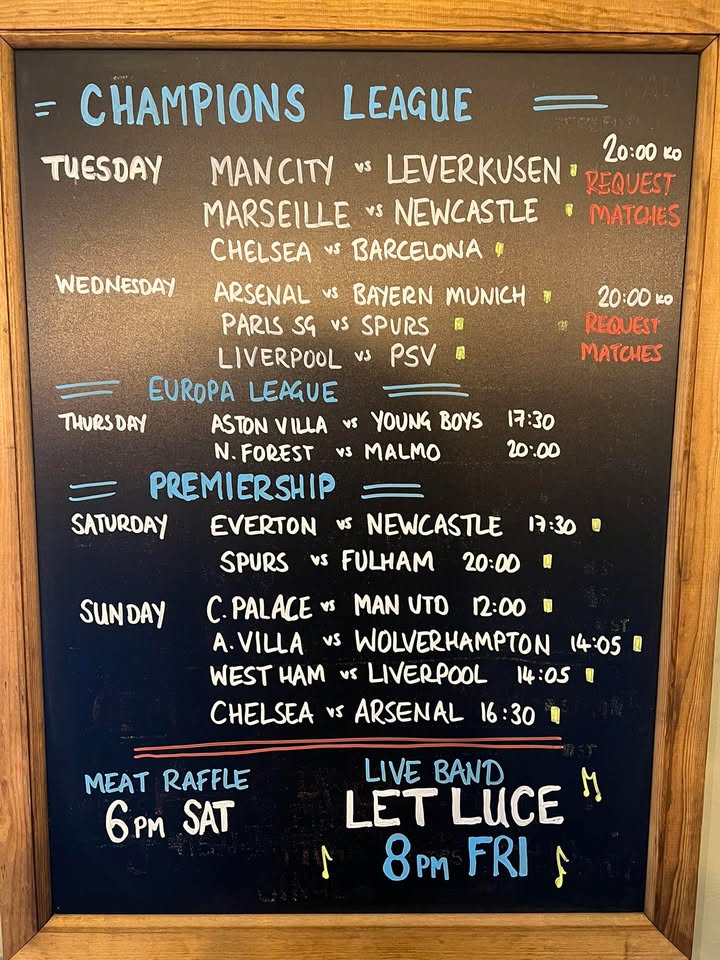 = CHAMPIONS LEAGUE =
20:00 KO
TUESDAY MAN CITY vs LEVERKUSEN REQUEST
MARSEILLE vs NEWCASTLE MATCHES
CHELSEA vs BARCELONA
WEDNESDAY ARSENAL vs BAYERN MUNICH 20:00 KO
PARIS SG vs SPURS REQUEST
LIVERPOOL vs PSV MATCHES
= EUROPA LEAGUE =
THURSDAY ASTON VILLA vs YOUNG BOYS 17:30
N. FOREST vs MALMO 20:00
= PREMIERSHIP =
SATURDAY EVERTON vs NEWCASTLE 17:30
SPURS vs FULHAM 20:00
SUNDAY C. PALACE vs MAN UTD 12:00
A. VILLA vs WOLVERHAMPTON 14:05
WEST HAM vs LIVERPOOL 14:05
CHELSEA vs ARSENAL 16:30
MEAT RAFFLE
6PM SAT
LIVE BAND
LET LUCE
8PM FRI